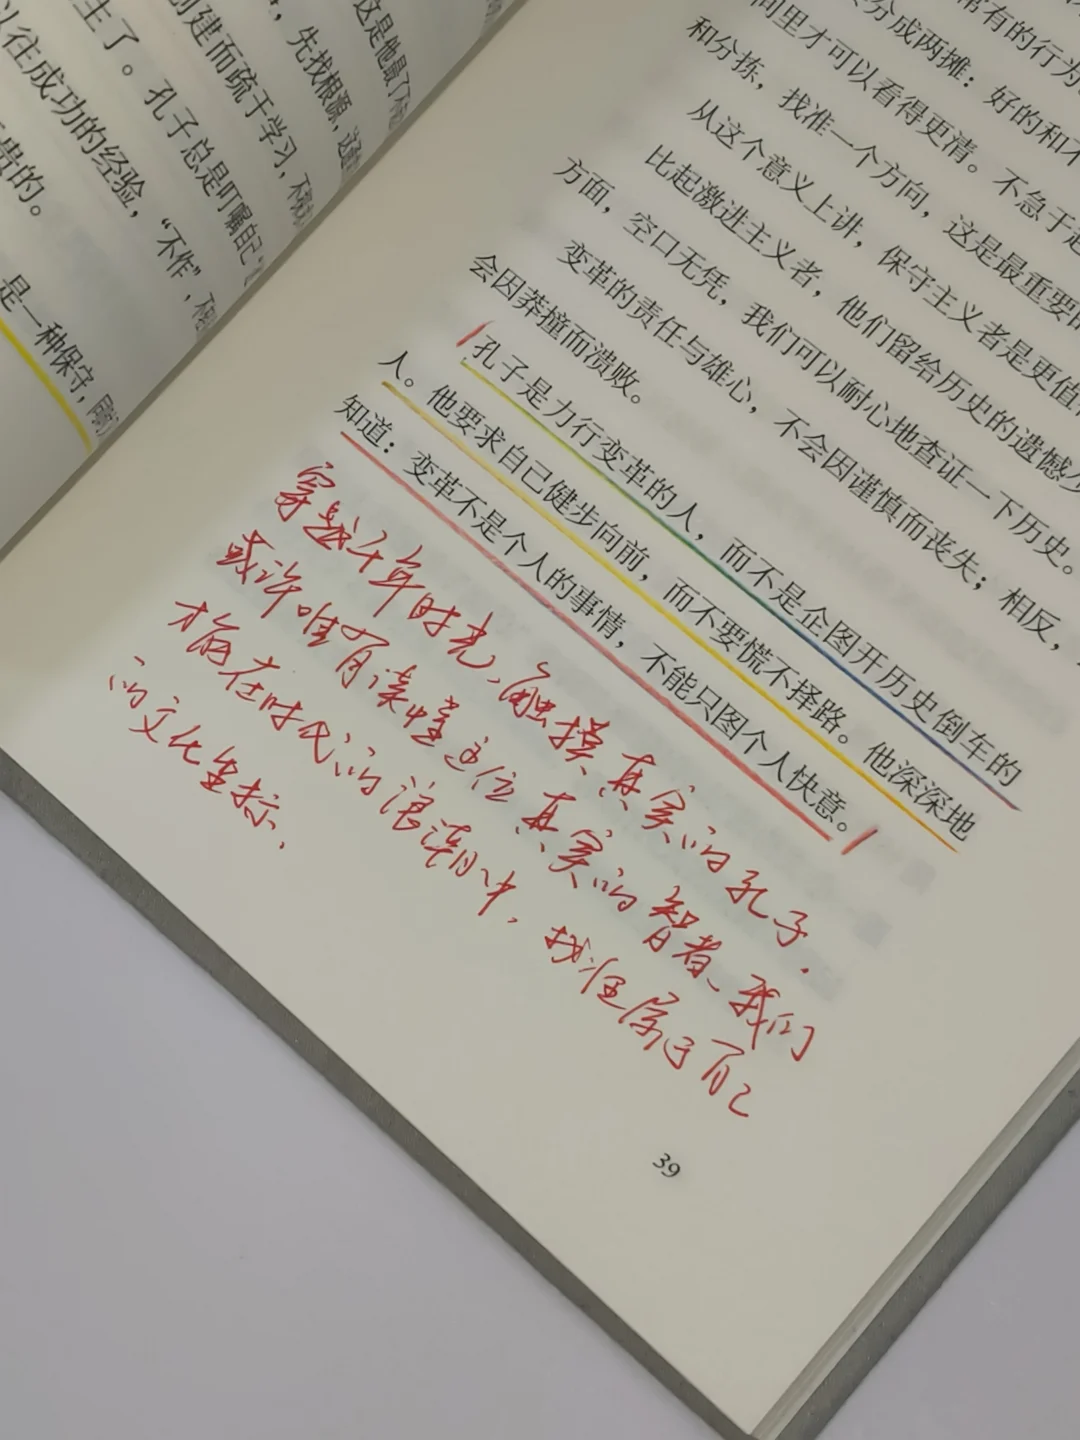 主了。孔子总是叮嘱自己
以往成功的经验，“不作”，
贵的。
是一种保守，
这是他最了不
创建而疏于学习，
，先找根源，
分成两摊：好的和不
常有的行为
间里才可以看得更清。不急于
和分拣，找准一个方向，这是最重要的
从这个意义上讲，保守主义者是更值
比起激进主义者，他们留给历史的遗憾少
方面，空口无凭，我们可以耐心地查证一下历史。
变革的责任与雄心，不会因谨慎而丧失；相反，
会因莽撞而溃败。
孔子是力行变革的人，而不是企图开历史倒车的
人。他要求自己健步向前，而不要慌不择路。他深深地
知道：变革不是个人的事情，不能只图个人快意。
穿越千年时光，触摸真实的孔子.
或许唯有读懂这位真实的智者、我们
才能在时代的浪潮中，找准属于自己
的文化坐标.
39